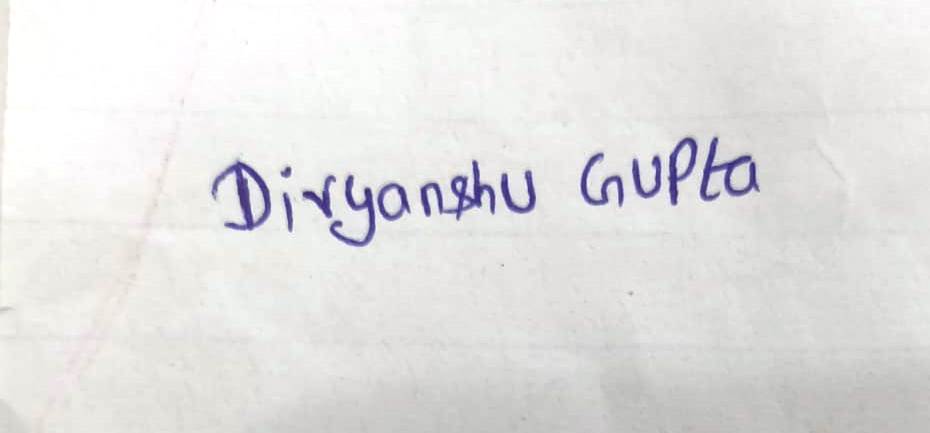 Divyanshu GUPta